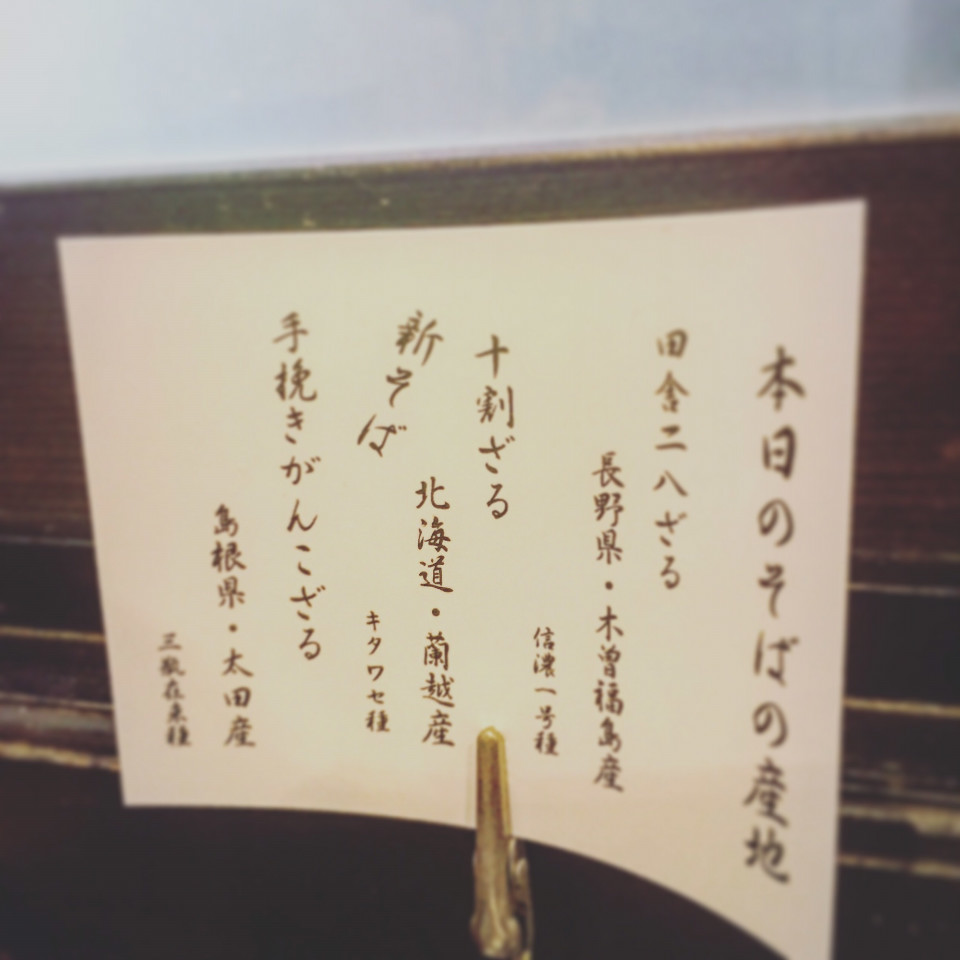 本日のそばの産地
田舎二八ざる
長野県・木曽福島産
信濃一号種
十割ざる
北海道・蘭越産
新そば
キタワセ種
手挽きがんこざる
島根県・太田産
三瓶在来種